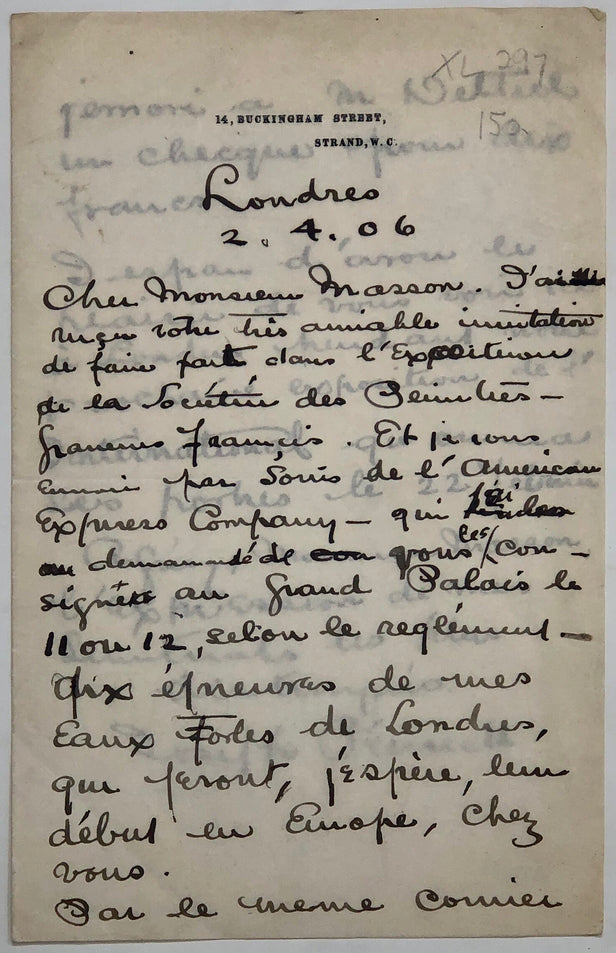 XL 297
150
14, BUCKINGHAM STREET,
STRAND, W.C.
Londres
2. 4. 06
Cher Monsieur Masson. J'ai
reçu votre très aimable invitation
de faire part dans l'Exposition
de la Société des Peintres-
graveurs Français. Et je vous
envoie par Soins de l'American
Express Company — qui j'ai
demandé de vous les con-
signer au Grand Palais le
11 ou 12, selon le reglément —
dix épreuves de mes
Eaux Fortes de Londres,
qui feront, j'espère, leur
début en Europe, chez
vous.
Par le meme courier